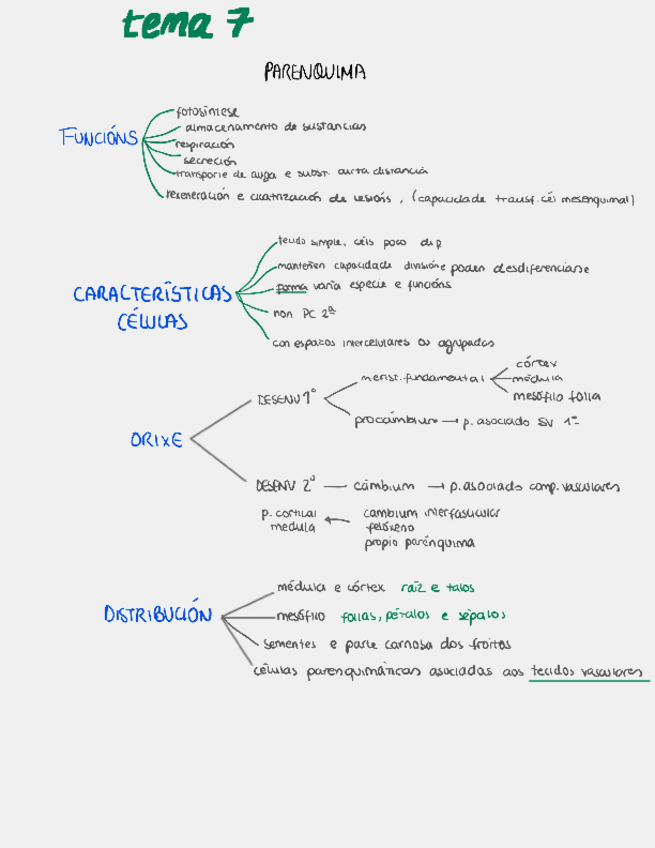 tema 7
PARENQUIMA
FUNCIÓNS
fotosíntese
almacenamento de sustancias
respiración
secreción
transporte de auga e subst. curta distancia
rexeneración e cicatrización de lesións, (capacidade transf. cél mesenquimal)
CARACTERÍSTICAS
CÉLULAS
tecido simple, céls pouco dif
manteñen capacidade división e poden desdiferenciarse
forma varía especie e funcións
non PC 2ª
con espazos intercelulares ou agrupadas
ORIXE
DESENV 1º
merist. fundamental
córtex
médula
mesófilo folla
procámbium → p. asociado SV 1º
DESENV 2º — cámbium → p. asociado comp. vasculares
p. cortical
medula
cambium interfascicular
felóxeno
propio parénquima
DISTRIBUCIÓN
médula e córtex raíz e talos
mesófilo follas, pétalos e sépalos
sementes e parte carnosa dos froitos
células parenquimáticas asociadas aos tecidos vasculares